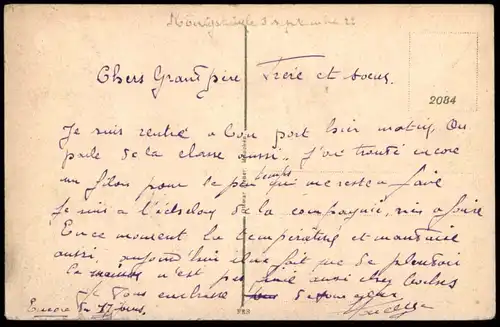 Königs 3 septembre 22
Chers Grand père Frère et soeur.
2084
Je suis rentré a bon port hier matin, On
parle de la classe aussi.. J'ai trouvé encore
un filon pour le peu temps qui me reste a faire
Je suis a l'échelon de la compagnie, rien a foire
En ce moment la température et mauvaise
aussi, aujourd'hui il ne fait que de pleuvoir
la n'est pas finie aussi chez boches
Je vous embrasse
Encore 77 jours